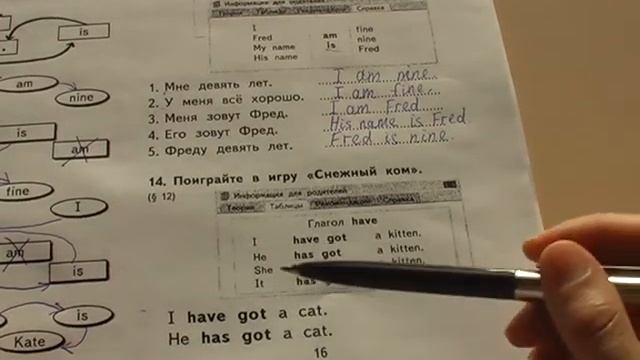 Информация для родителей
Справка
I
Fred
My name
His name
am
is
fine
nine
Fred
is
am
nine
is
am
fine
I
am
is
is
Kate
1. Мне девять лет. I am nine.
2. У меня всё хорошо. I am fine.
3. Меня зовут Фред. I am Fred
4. Его зовут Фред. His name is Fred
5. Фреду девять лет. Fred is nine.
14. Поиграйте в игру «Снежный ком».
(§ 12)
Информация для родителей
Теория Таблицы Справка
Глагол have
I have got a kitten.
He has got a kitten.
She kitten.
It has
I have got a cat.
He has got a cat.
16